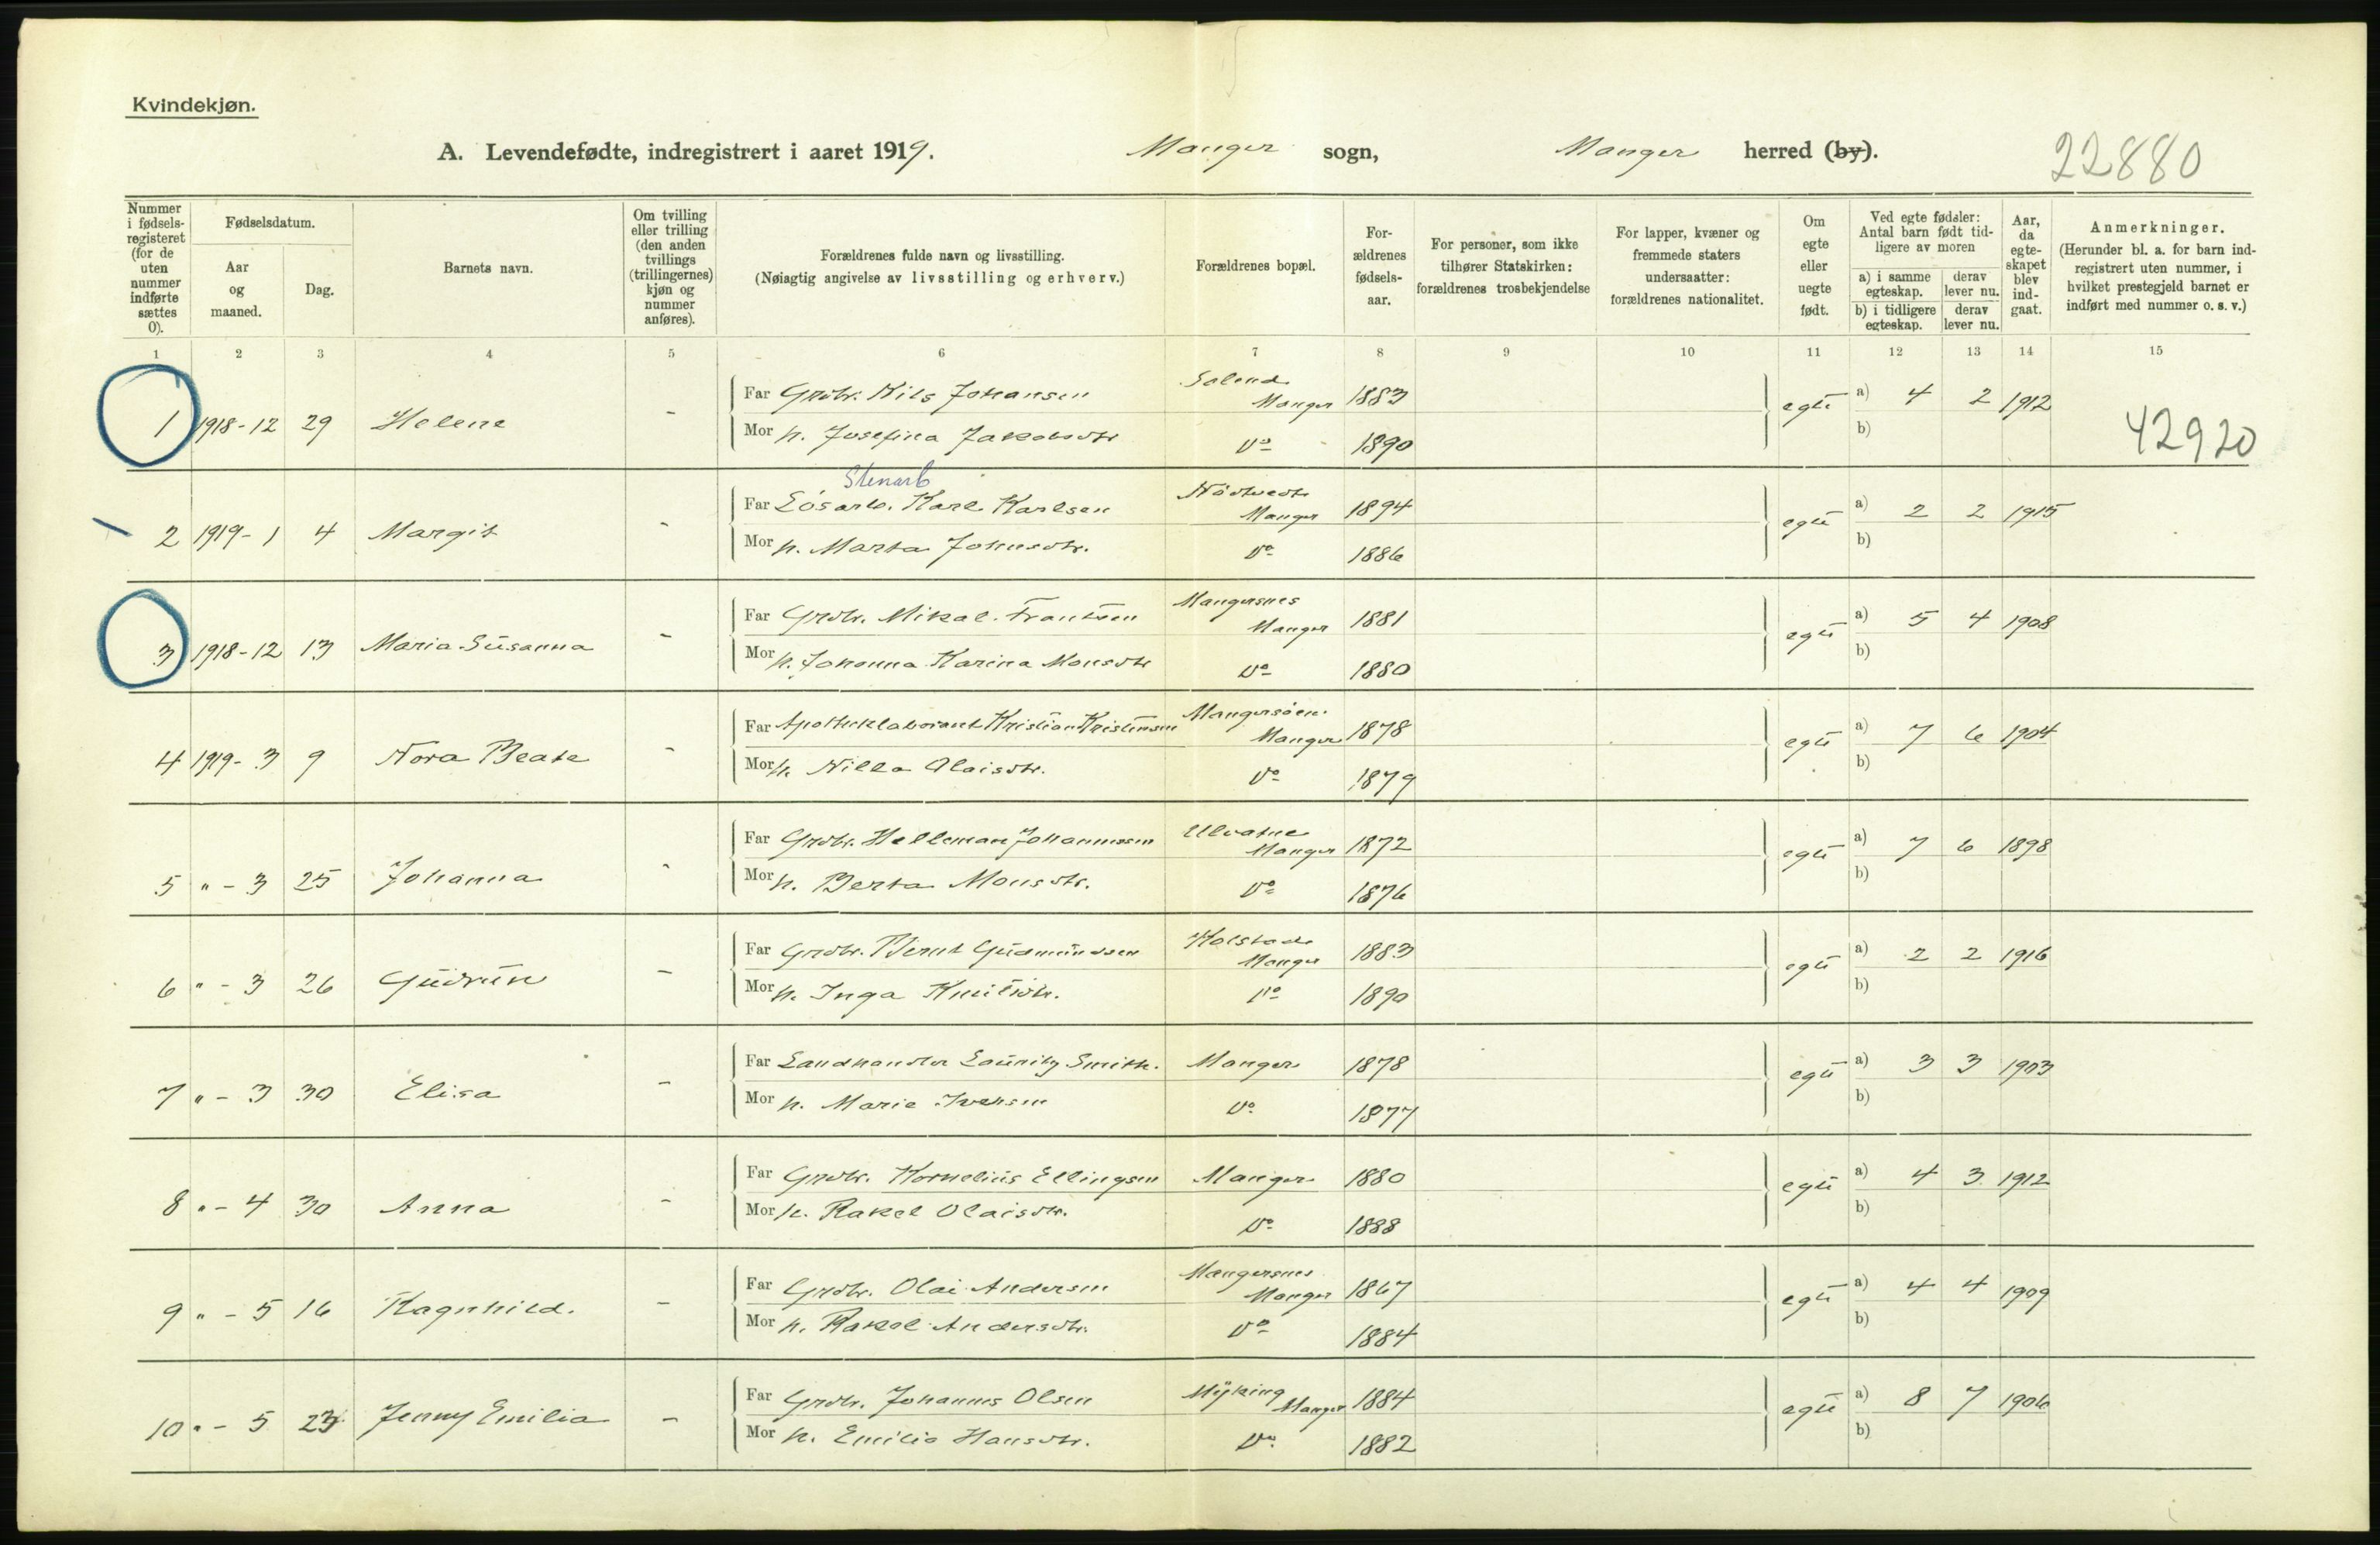 Kvindekjøn.
A. Levendefødte, indregistrert i aaret 1919. Manger sogn, Manger herred (by). 22880
Nummer i fødsels-registeret (for de uten nummer indførte sættes 0).
Fødselsdatum.
Aar og maaned.
Dag.
Barnets navn.
Om tvilling eller trilling (den anden tvillings (trillingernes) kjøn og nummer anføres).
Forældrenes fulde navn og livsstilling.
(Nøiagtig angivelse av livsstilling og erhverv.)
Forældrenes bopæl.
For-ældrenes fødsels-aar.
For personer, som ikke tilhører Statskirken: forældrenes trosbekjendelse
For lapper, kvæner og fremmede staters undersaatter: forældrenes nationalitet.
Om egte eller uegte født.
Ved egte fødsler: Antal barn født tid-ligere av moren
a) i samme egteskap. derav lever nu.
b) i tidligere egteskap. derav lever nu.
Aar, da egte-skapet blev ind-gaat.
Anmerkninger.
(Herunder bl. a. for barn ind-registrert uten nummer, i hvilket prestegjeld barnet er indført med nummer o. s. v.)
1 2 3 4 5 6 7 8 9 10 11 12 13 14 15
Far Grdbr. Nils Johansen Soleud Manger 1883 egte a) 4 2 1912
1 1918-12 29 Helene -
Mor h. Josefina Jakobsdtr Do 1890 b) 42920
Stenarb
Far Løsarb. Karl Karlsen Nödtvedt Manger 1894 egte a) 2 2 1915
2 1919-1 4 Margit -
Mor h. Marta Johnsdtr. Do 1886 b)
Far Grdbr. Mikal Frantsen Mangersnes Manger 1881 egte a) 5 4 1908
3 1918-12 13 Maria Susanna -
Mor h. Johanna Karina Monsdtr Do 1880 b)
Far Apotheklaborant Kristian Kristensen Mangersöen Manger 1878 egte a) 7 6 1904
4 1919-3 9 Nora Beate -
Mor h. Nilla Olaisdtr. Do 1879 b)
Far Grdbr. Helleman Johannessen Ulvatne Manger 1872 egte a) 7 6 1898
5 " - 3 25 Johanna -
Mor h. Berta Monsdtr. Do 1876 b)
Far Grdbr. Bernt Gudmundsen Holstad Manger 1883 egte a) 2 2 1916
6 " - 3 26 Gudrun -
Mor h. Inga Knutsdtr. Do 1890 b)
Far Landhandler Lauritz Smith. Manger 1878 egte a) 3 3 1903
7 " - 3 30 Elisa -
Mor h. Marie Iversen Do 1877 b)
Far Grdbr. Kornelius Ellingsen Manger 1880 egte a) 4 3 1912
8 " - 4 30 Anna -
Mor h. Rakel Olaisdtr. Do 1888 b)
Far Grdbr. Olai Andersen Mangersnes Manger 1867 egte a) 4 4 1909
9 " - 5 16 Ragnhild. -
Mor h. Rakel Andersdtr. Do 1884 b)
Far Grdbr. Johannes Olsen Myking Manger 1884 egte a) 8 7 1906
10 " - 5 23 Jenny Emilia -
Mor h. Emilia Hansdtr. Do 1882 b)